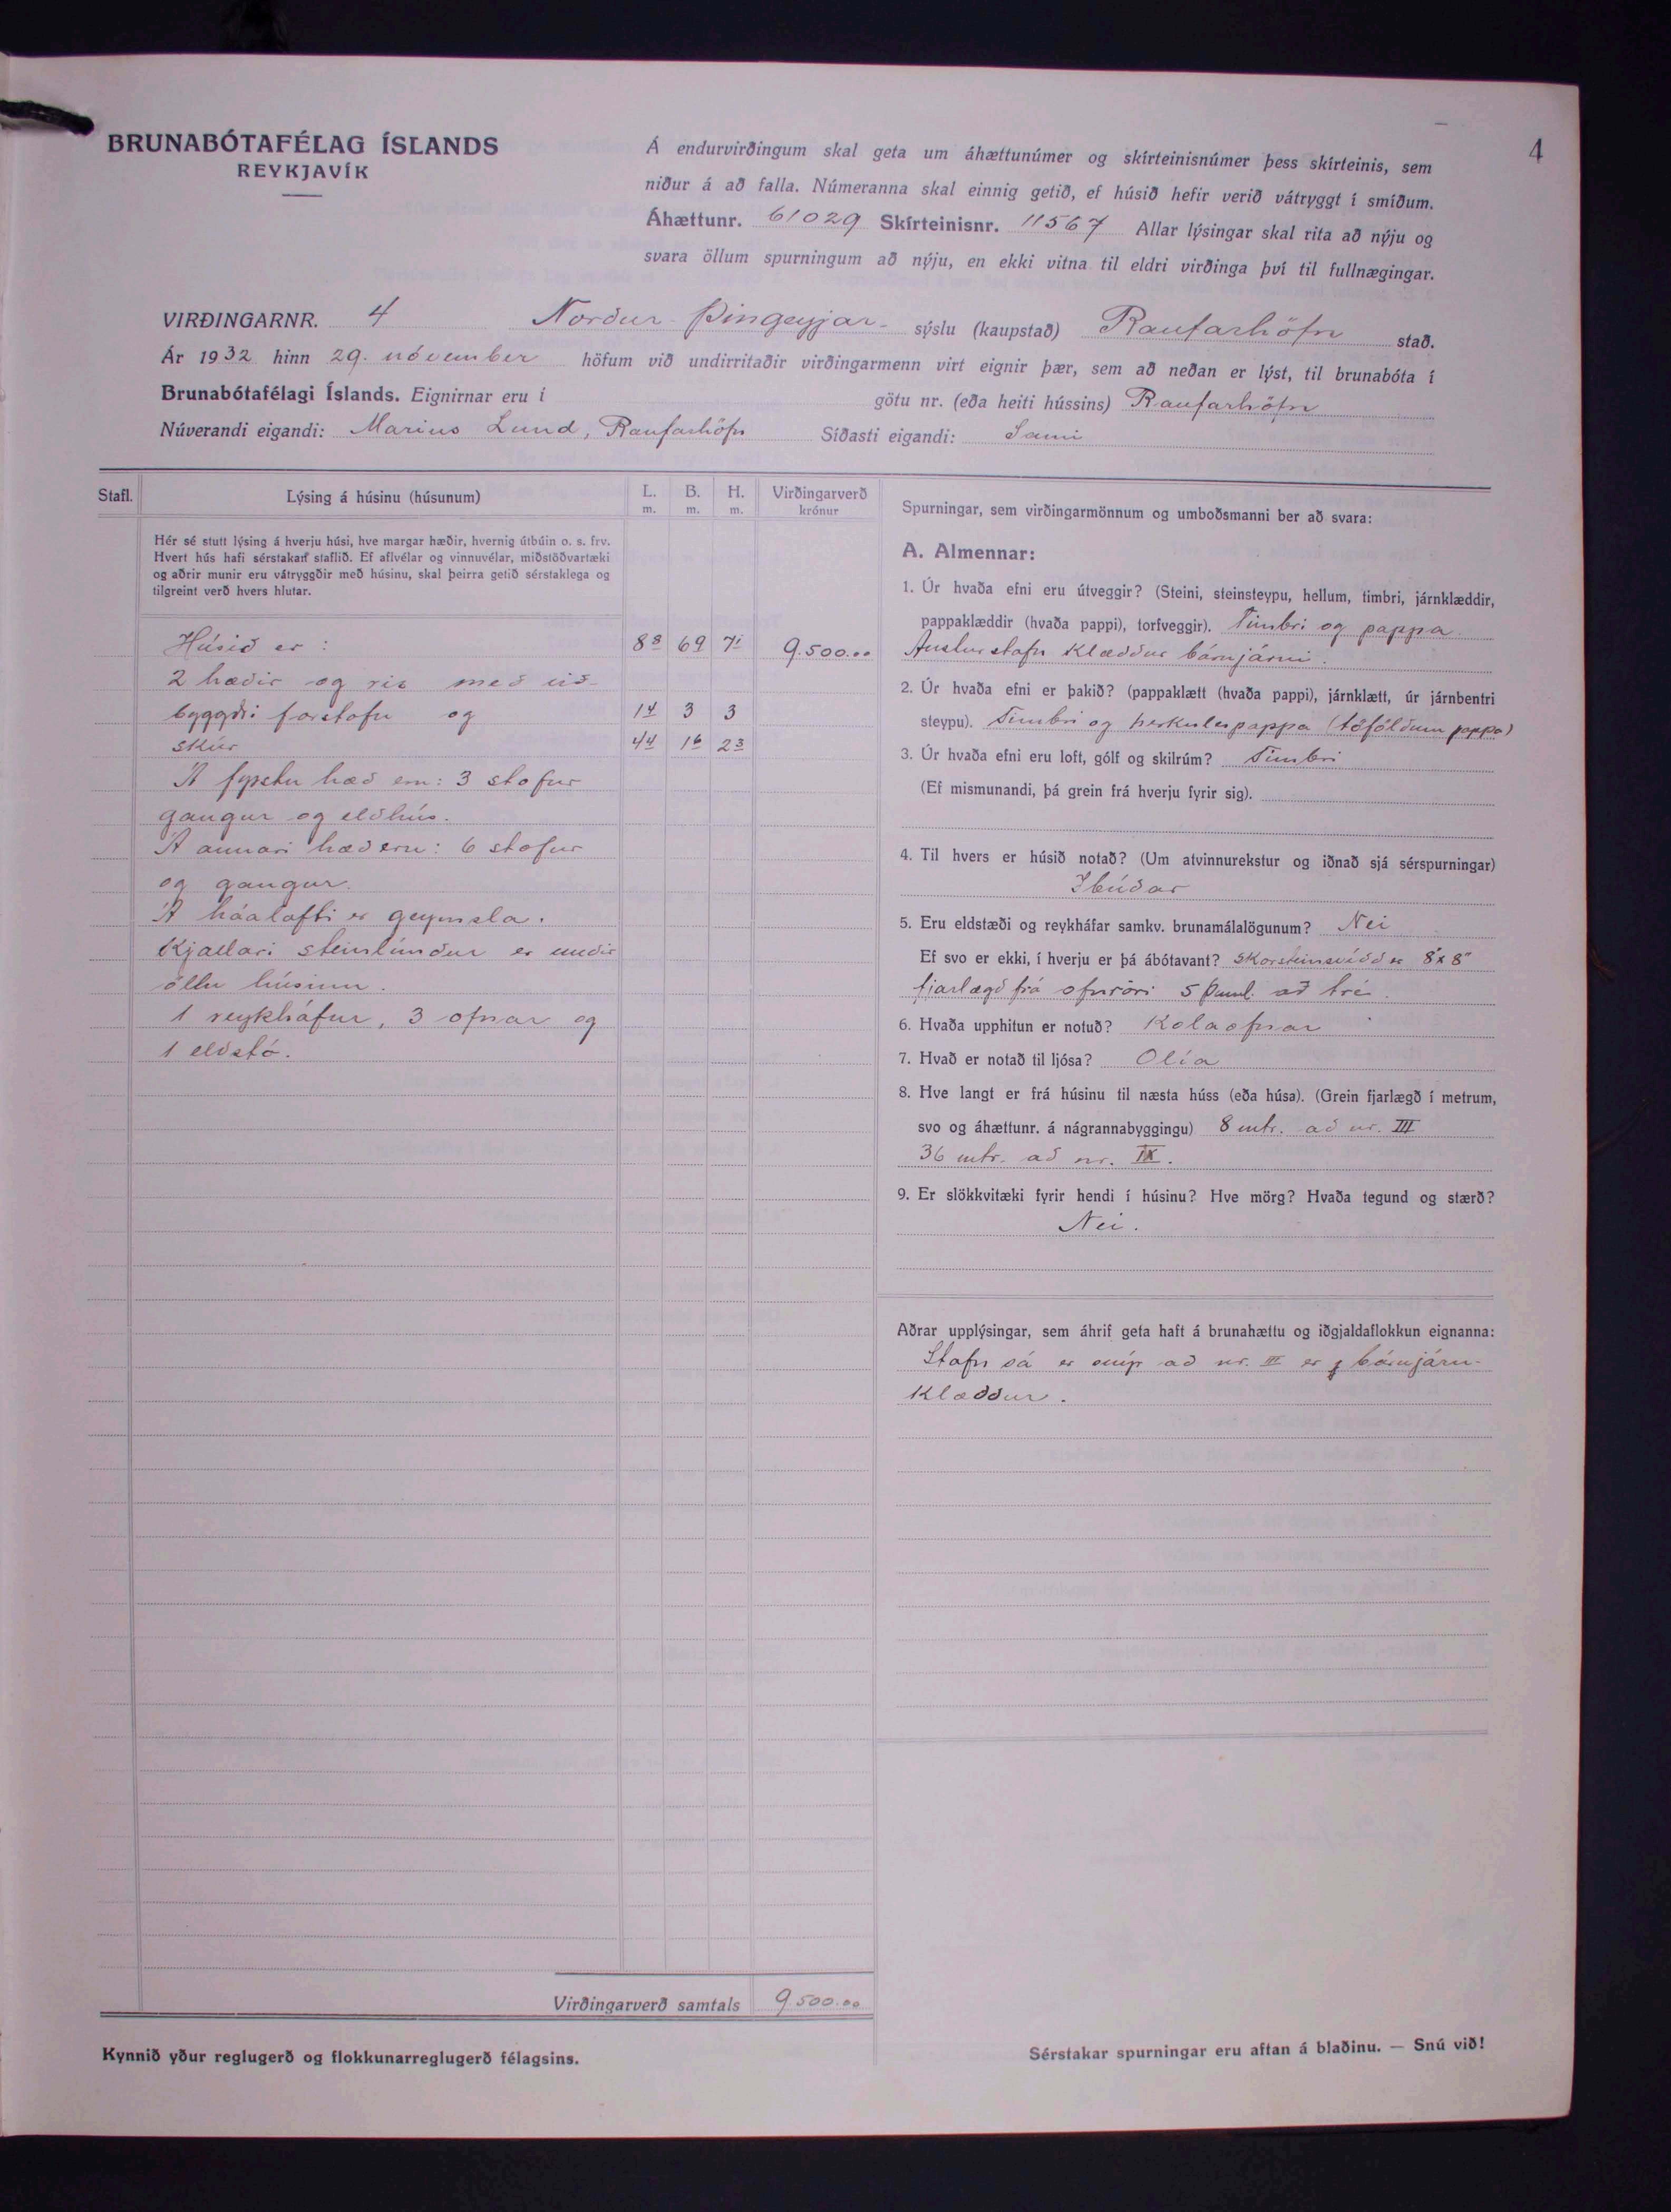 4
BRUNABÓTAFÉLAG ÍSLANDS
REYKJAVÍK
Á endurvirðingum skal geta um áhættunúmer og skírteinisnúmer þess skírteinis, sem
niður á að falla. Númeranna skal einnig getið, ef húsið hefir verið vátryggt í smíðum.
Áhættunr. 61029 Skírteinisnr. 11567 Allar lýsingar skal rita að nýju og
svara öllum spurningum að nýju, en ekki vitna til eldri virðinga því til fullnægingar.
VIRÐINGARNR. 4 Norður-Þingeyjar- sýslu (kaupstað) Raufarhöfn stað.
Ár 1932 hinn 29. nóvember höfum við undirritaðir virðingarmenn virt eignir þær, sem að neðan er lýst, til brunabóta í
Brunabótafélagi Íslands. Eignirnar eru í götu nr. (eða heiti hússins) Raufarhöfn
Núverandi eigandi: Marius Lund, Raufarhöfn Síðasti eigandi: Sami
Stafl. Lýsing á húsinu (húsunum) L. m. B. m. H. m. Virðingarverð krónur
Hér sé stutt lýsing á hverju húsi, hve margar hæðir, hvernig útbúin o. s. frv.
Hvert hús hafi sérstakan staflið. Ef aflvélar og vinnuvélar, miðstöðvartæki
og aðrir munir eru vátryggðir með húsinu, skal þeirra getið sérstaklega og
tilgreint verð hvers hlutar.
Húsið er : 8 8 6 9 7 1 9.500.00
2 hæðir og ris með við-
byggðri forstofu og 1 4 3 3
skúr 4 4 1 6 2 3
Á fyrstu hæð eru: 3 stofur
gangur og eldhús.
Á annari hæð eru: 6 stofur
og gangur.
Á háalofti er geymsla.
Kjallari steinlímdur er undir
öllu húsinu.
1 reykháfur, 3 ofnar og
1 eldstó.
Virðingarverð samtals 9.500.00
Kynnið yður reglugerð og flokkunarreglugerð félagsins.
Spurningar, sem virðingarmönnum og umboðsmanni ber að svara:
A. Almennar:
1. Úr hvaða efni eru útveggir? (Steini, steinsteypu, hellum, timbri, járnklæddir,
pappaklæddir (hvaða pappi), torfveggir). Timbri og pappa.
Austurstafn klæddur bárujárni.
2. Úr hvaða efni er þakið? (pappaklætt (hvaða pappi), járnklætt, úr járnbentri
steypu). Timbri og herkulespappa (töföldum pappa)
3. Úr hvaða efni eru loft, gólf og skilrúm? Timbri
(Ef mismunandi, þá grein frá hverju fyrir sig).
4. Til hvers er húsið notað? (Um atvinnurekstur og iðnað sjá sérspurningar)
Íbúðar
5. Eru eldstæði og reykháfar samkv. brunamálalögunum? Nei
Ef svo er ekki, í hverju er þá ábótavant? Skorsteinsvídd er 8"x8"
fjarlægð frá ofnröri 5 þuml. að tré.
6. Hvaða upphitun er notuð? Kolaofnar
7. Hvað er notað til ljósa? Olía
8. Hve langt er frá húsinu til næsta húss (eða húsa). (Grein fjarlægð í metrum,
svo og áhættunr. á nágrannabyggingu) 8 mtr. að nr. III
36 mtr. að nr. IX.
9. Er slökkvitæki fyrir hendi í húsinu? Hve mörg? Hvaða tegund og stærð?
Nei.
Aðrar upplýsingar, sem áhrif geta haft á brunahættu og iðgjaldaflokkun eignanna:
Stafn sá er snýr að nr. III er bárujárn-
klæddur.
Sérstakar spurningar eru aftan á blaðinu. — Snú við!